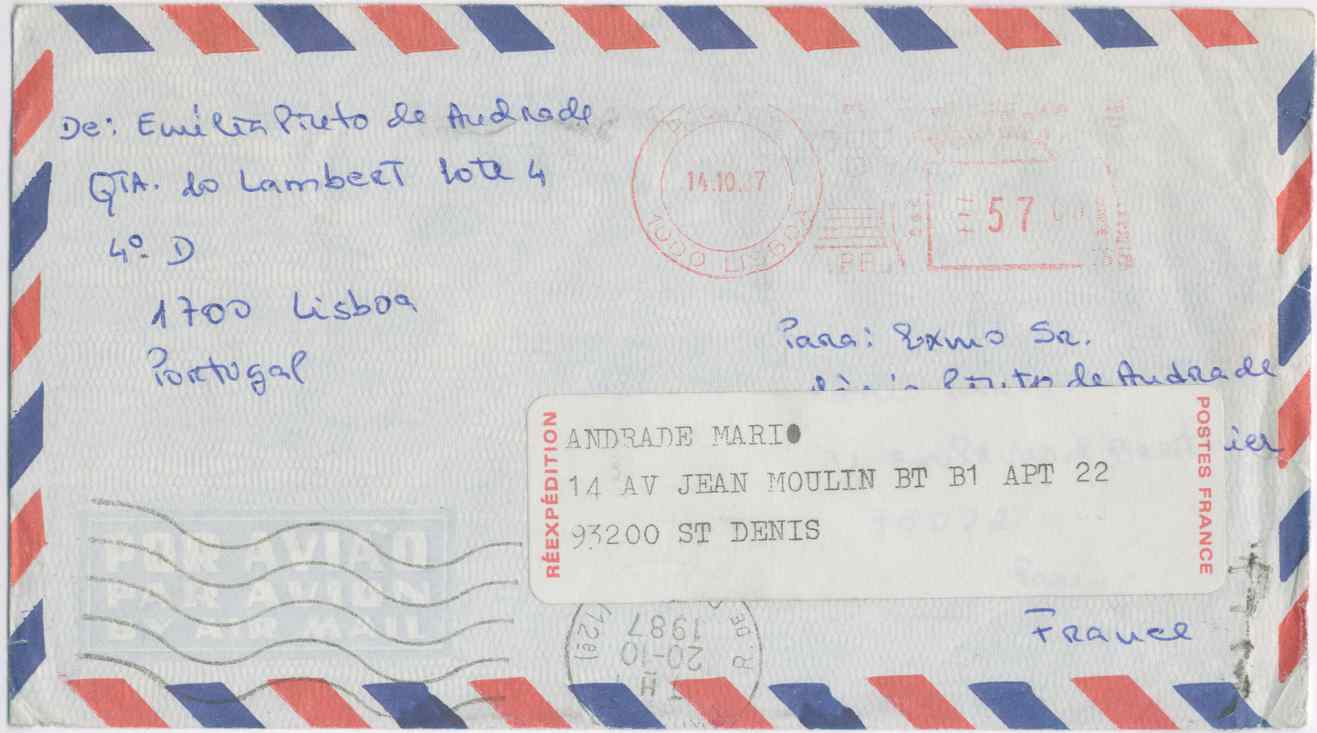 De: Emília Pinto de Andrade
QTA. do Lambert lote 4
4º D
1700 Lisboa
Portugal
14.10. 7
1000 LISBOA
57
Para: Exmo Sr.
Pinto de Andrade
RÉEXPÉDITION
ANDRADE MARIO
14 AV JEAN MOULIN BT B1 APT 22
93200 ST DENIS
POSTES FRANCE
ier
France
POR AVIÃO
PAR AVION
BY AIR MAIL
1987
20-10
R. DE
(12e)